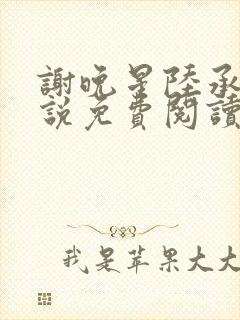 謝晚星陸承
説免費閱讀
我是苹果大大